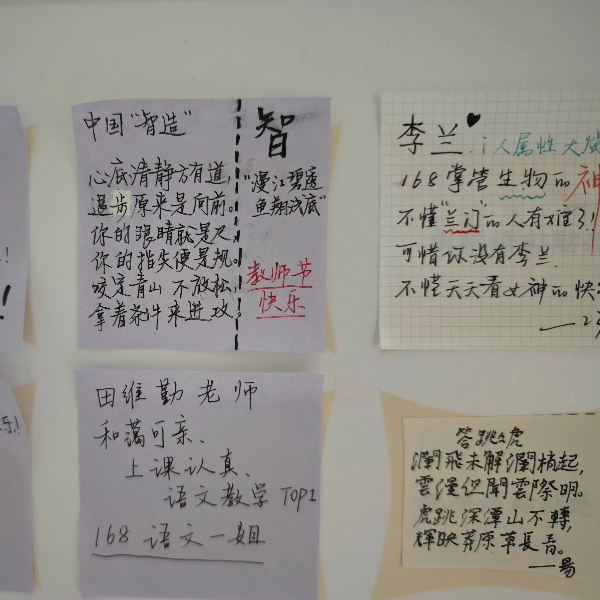 中国“智造”
心底清静方有道，
退步原来是向前。
你的眼睛就是尺，
你的指尖便是规。
咬定青山不放松，
拿着条件来进攻！
智
“漫江碧透
鱼翔浅底”
教师节
快乐
李兰
i人属性大
168掌管生物的神
不懂“兰门”的人有难了！
可惜你没有李兰
不懂天天看女神的快
田维勤老师
和蔼可亲、
上课认真、
语文教学 TOP1
168 语文一姐
答跳久虎
瀾飛未解瀾槁起，
雲漫但聞雲際明。
虎跳深潭山不轉，
輝映莽原草長青。